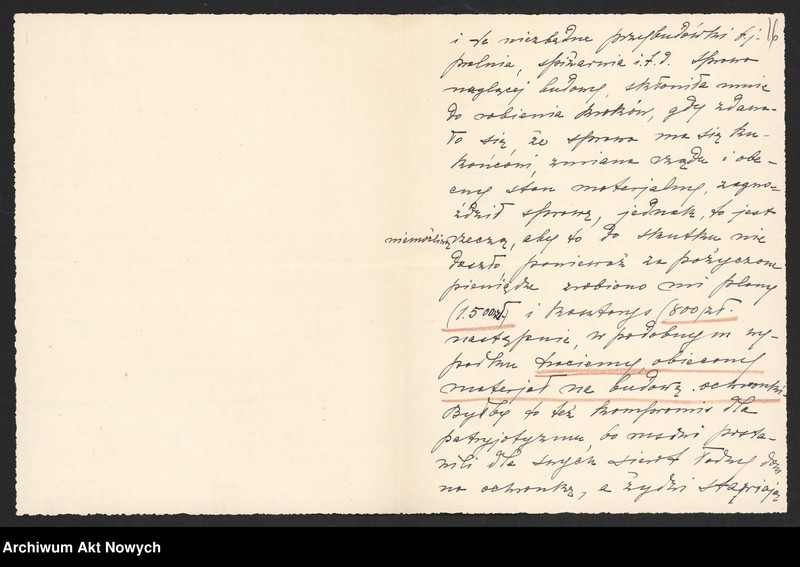 16
i te niezbędne przybudówki t.j.
pralnia, spiżarnia i.t.d. Sprawa
naglącej budowy, skłoniła mnie
do robienia kroków, gdy zdawa-
ło się, że sprawa ma się ku
końcowi, zmiana rządu i obe-
cny stan materjalny, zagwo-
ździł sprawę, jednak, to jest
niemożliwą rzeczą, aby to do skutku nie
doszło ponieważ za pożyczone
pieniądze zrobiono mi plany
(1.500zł.) i kosztorys (800) zł.
następnie, w podobnym wy-
padku tracimy, obiecany
materjał na budowę ochronki.
Byłby to też kompromis dla
patryjotyzmu, bo posta-
wili dla swych sierot ładny dom
na ochronkę, a żydzi stawiają
Archiwum Akt Nowych